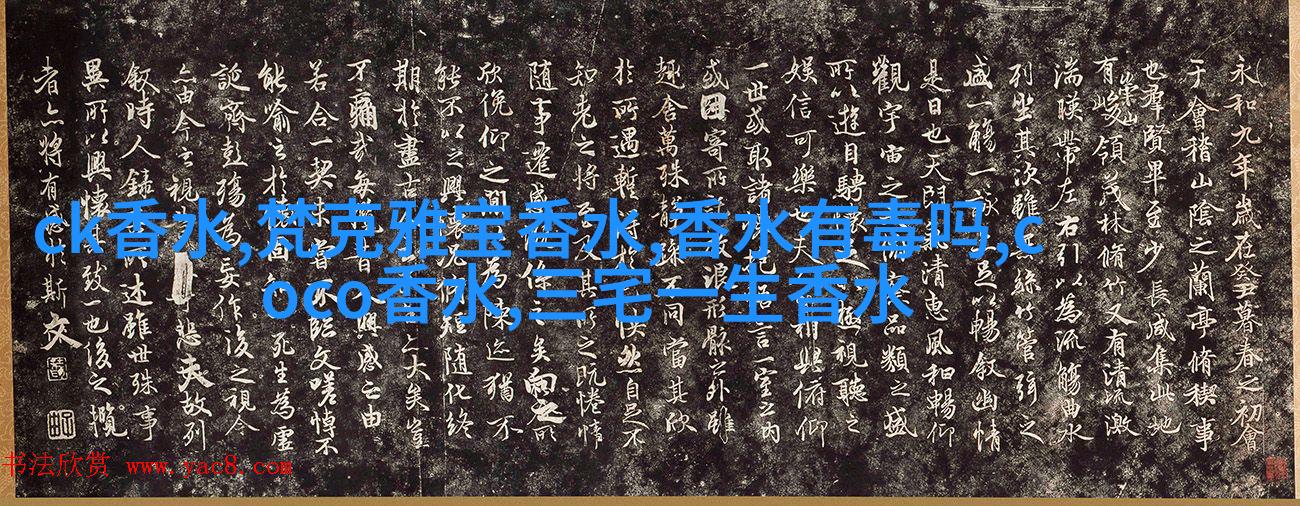 永和九年歲在癸丑暮春之初會
于會稽山陰之蘭亭脩稧事
也羣賢畢至少長咸集此地
有崇山峻領茂林脩竹又有清流激
湍暎帶左右引以為流觴曲水
列坐其次雖無絲竹管弦之
盛一觴一詠亦足以暢敘幽情
是日也天朗氣清惠風和暢仰
觀宇宙之品類之盛
所以遊目騁懷足以極視聽之
娛信可樂也夫相與俯仰
一世或取諸抱悟言一室之內
或因寄所放浪形骸之外雖
趣舍萬殊靜躁不同當其欣
於所遇蹔得於怏然自足不
知老之將至及其所之既惓情
隨事遷感係之矣向之所
欣俛仰之間為陳迹猶不
能不以之興懷況脩短隨化終
期於盡古大矣豈
不痛哉每昔興感之由
若合一契未嘗不臨文嗟悼不
能喻之於固死生為虛
誕齊彭殤為妄作後之視今
亦由今之視悲夫故列
敘時人錄其述雖世殊事
異所以興懷其致一也後之攬
者亦將有感於斯文
ck香水,梵克雅宝香水,香水有毒吗,c
oco香水,三宅一生香水
书法欣赏 www.yac8.com